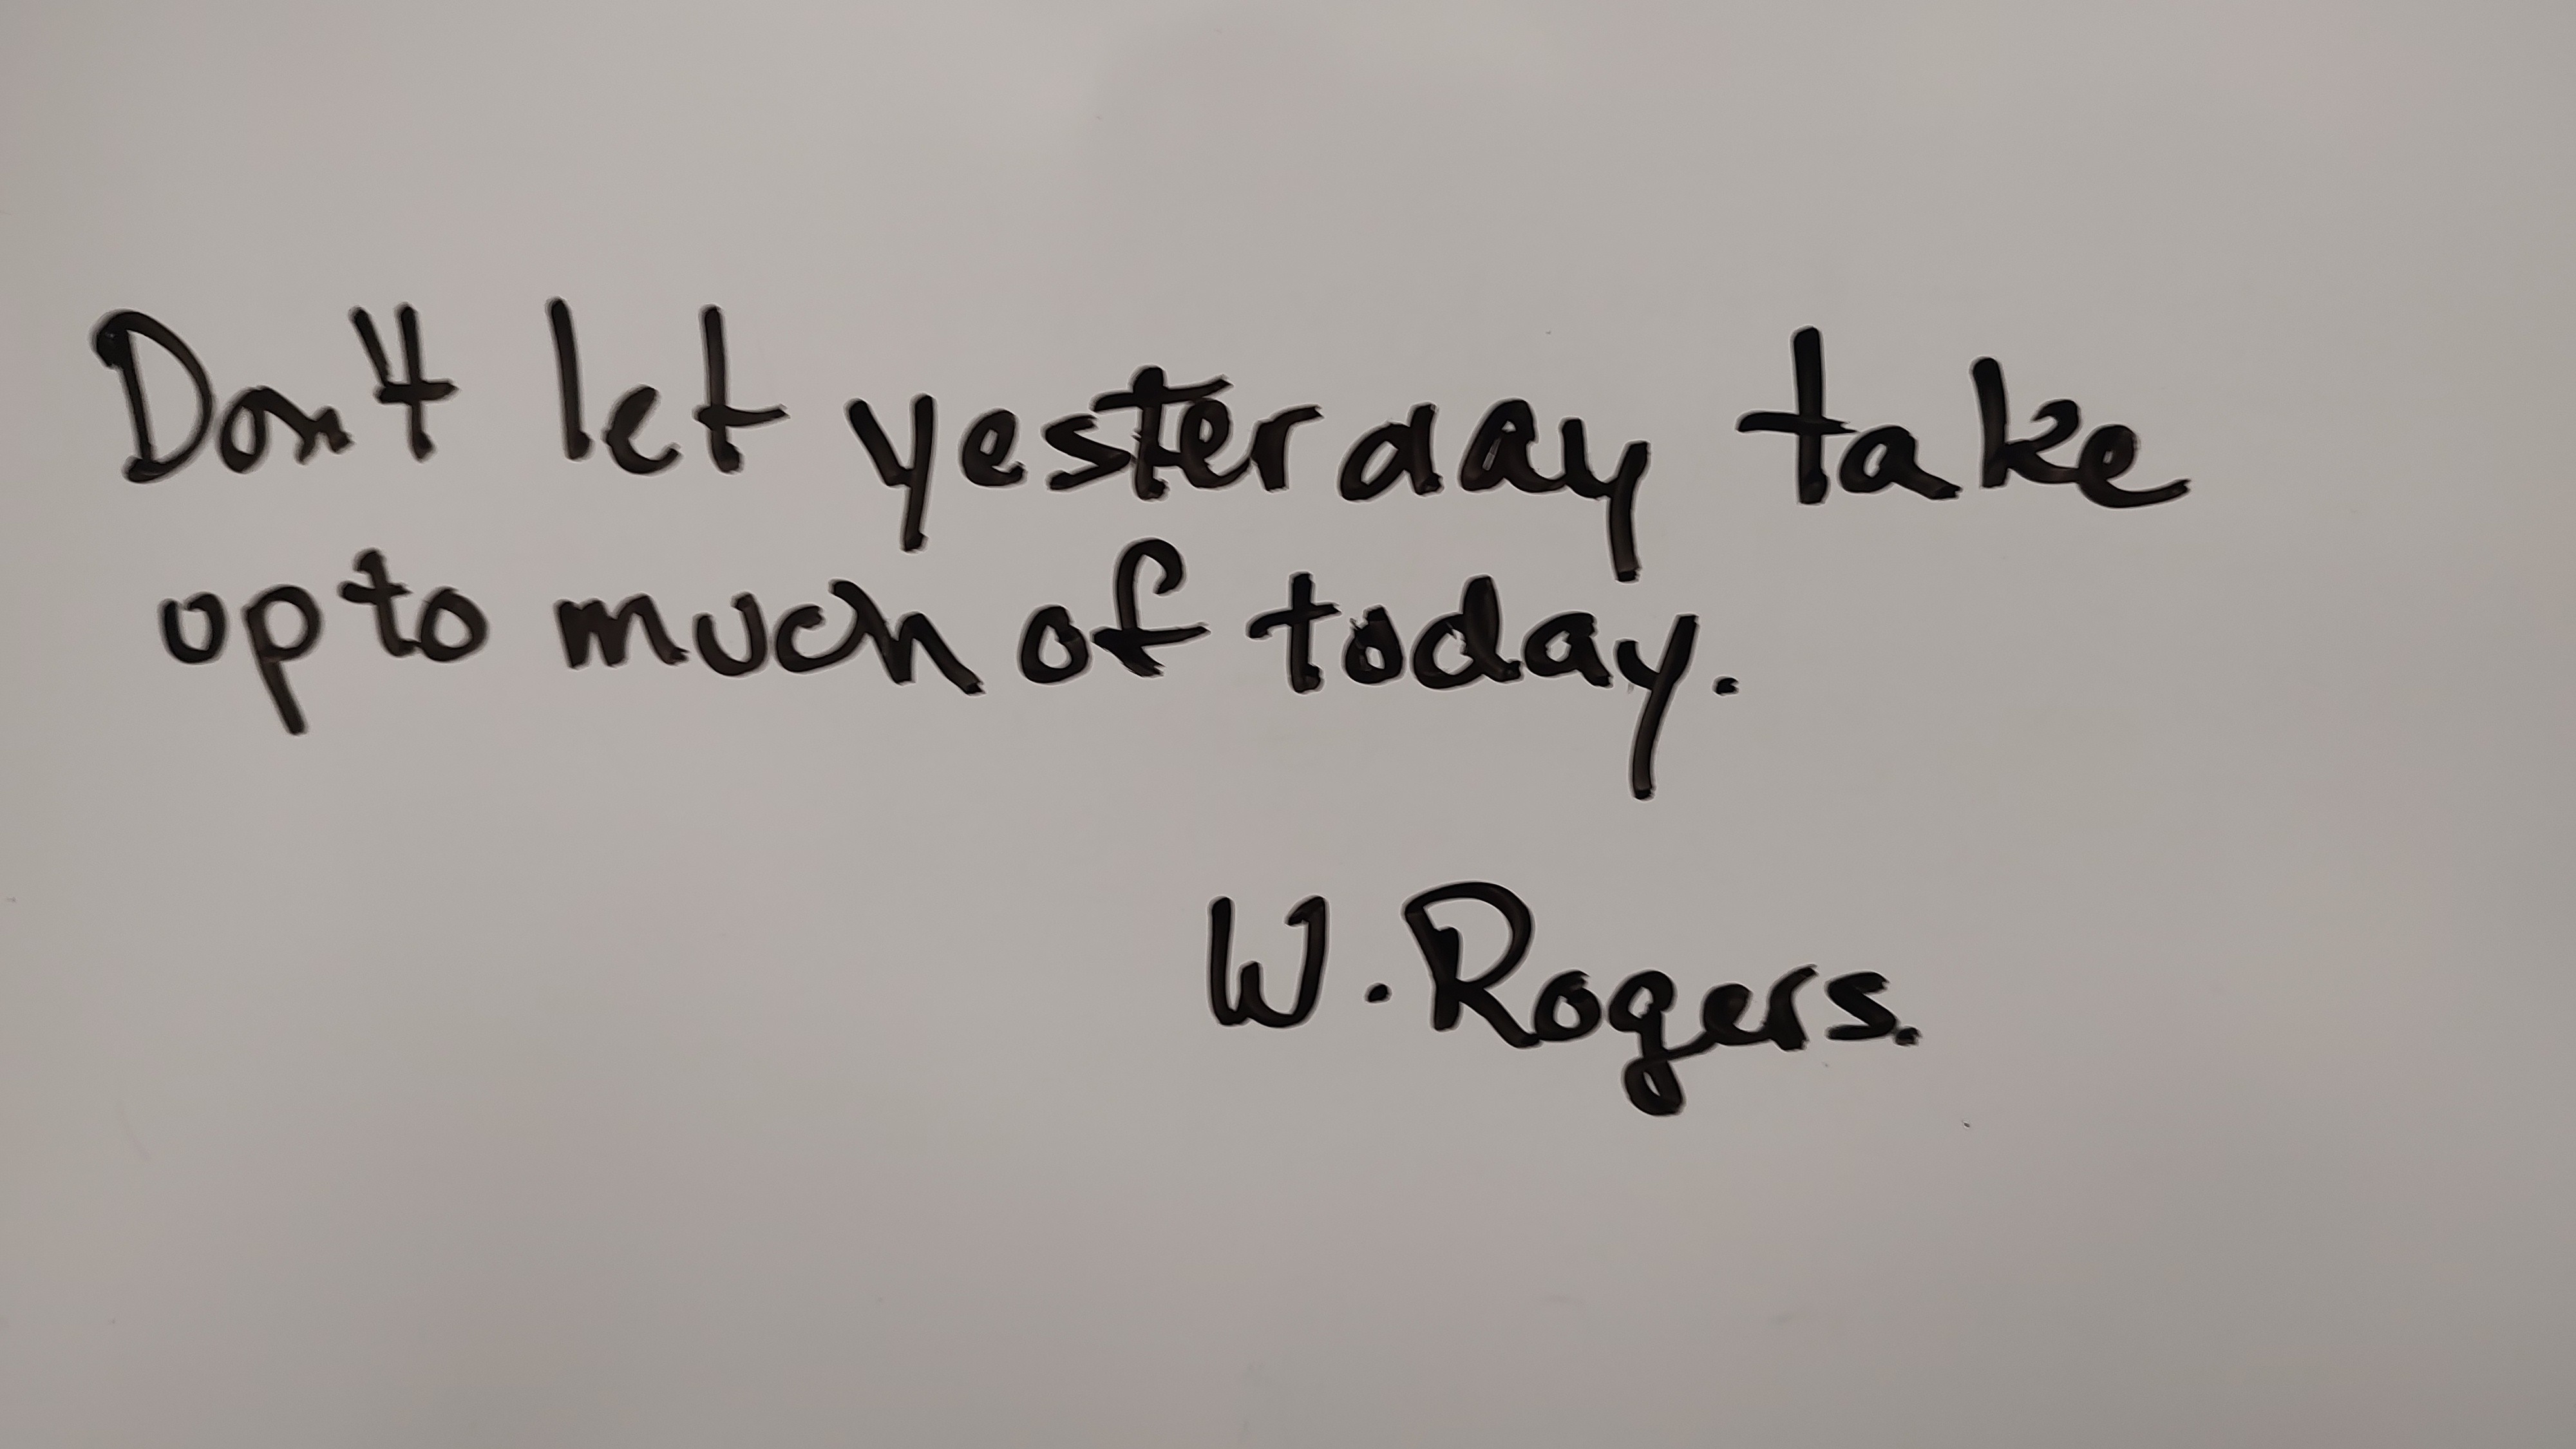 Don't let yesterday take
up to much of today.
W. Rogers.